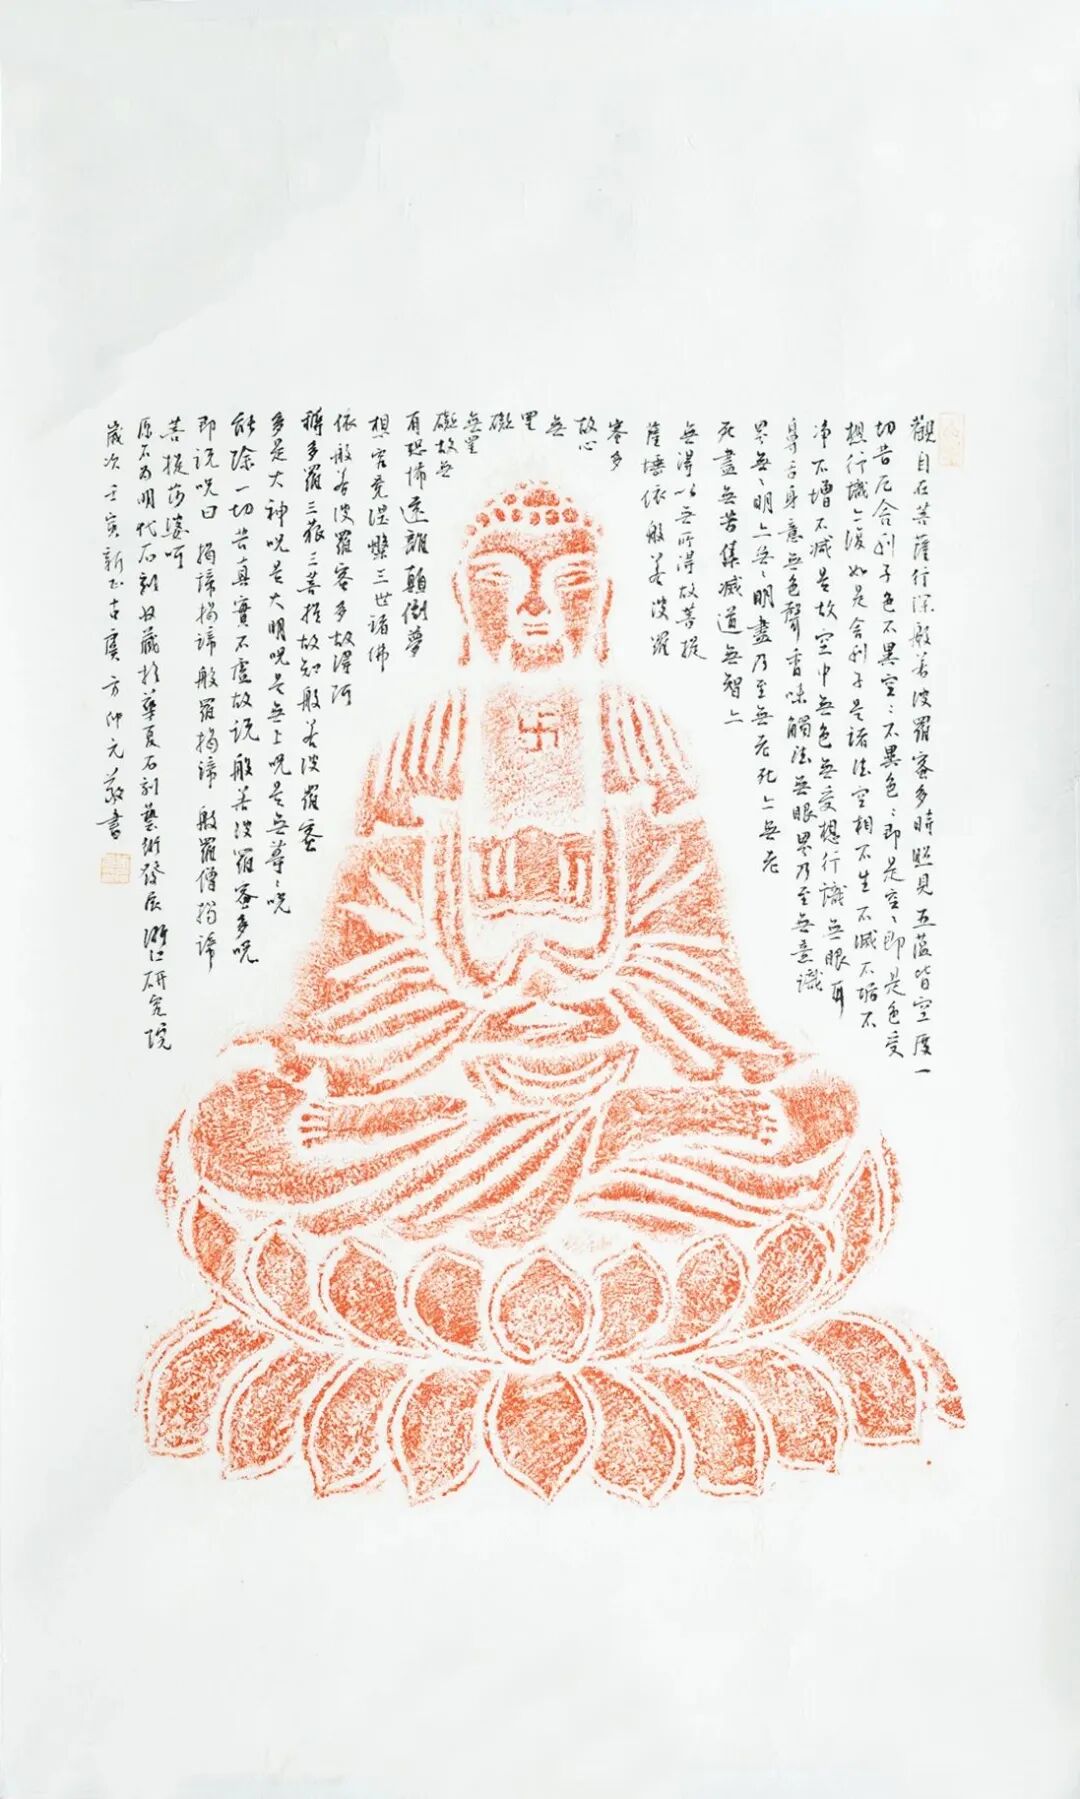 觀自在菩薩行深般若波羅蜜多時照見五蘊皆空度一
切苦厄舍利子色不異空〻不異色〻即是空〻即是色受
想行識亦復如是舍利子是諸法空相不生不滅不垢不
淨不增不減是故空中無色無受想行識無眼耳
鼻舌身意無色聲香味觸法無眼界乃至無意識
界無〻明亦無〻明盡乃至無老死亦無老
死盡無苦集滅道無智亦
無得以無所得故菩提
薩埵依般若波羅
蜜多
故心
無
罣
礙
無罣
礙故無
有恐怖遠離顛倒夢
想究竟涅槃三世諸佛
依般若波羅蜜多故得阿
耨多羅三藐三菩提故知般若波羅蜜
多是大神呪是大明呪是無上呪是無等〻呪
能除一切苦真實不虛故說般若波羅蜜多呪
即說呪曰揭諦揭諦般羅揭諦般羅僧揭諦
菩提莎婆呵
原石為明代石刻收藏於華夏石刻藝術發展浙江研究院
歲次壬寅新正古虞方仲元敬書